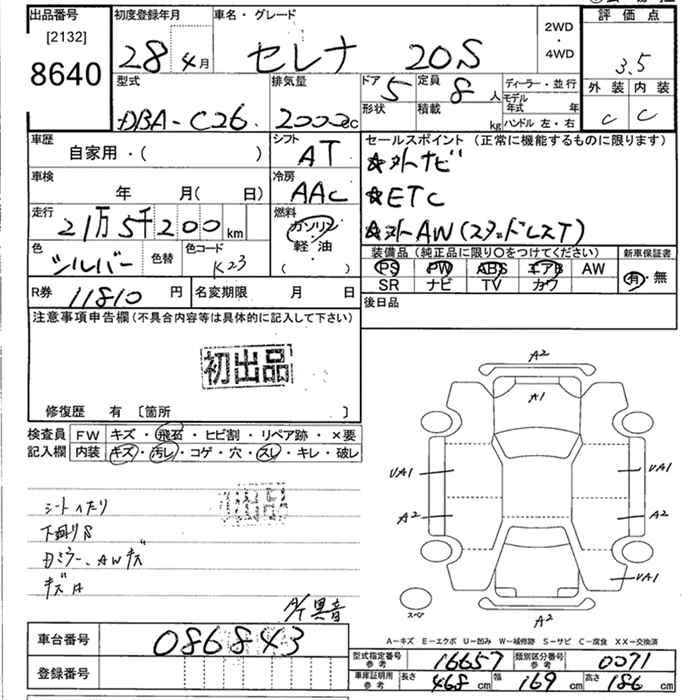 出品番号 初度登録年月 車名・グレード 評価点
[2132]
8640
28 4月 セレナ 20S
2WD・4WD
3.5
外装 内装
C C
型式 排気量 ドア 定員 ディーラー・並行
DBA-C26 2000cc 5 8人
モデル年式 年
形状 積載 kg ハンドル 左・右
車歴 シフト セールスポイント (正常に機能するものに限ります)
自家用・( ) AT ☆外ナビ
車検 冷房
年 月( 日) AAC ☆ETC
走行 燃料
21万5千200km ガソリン ☆外AW(スタッドレスT)
軽油
( )
色 色替 色コード 装備品 (純正品に限り○をつけてください) 新車保証書
シルバー K23 PS PW ABS エアB AW 有・無
SR ナビ TV カワ
R券 11810円 名変期限 月 日 後日品
注意事項申告欄 (不具合内容等は具体的に記入して下さい)
初出品
修復歴 有 [箇所 ]
検査員 FW キズ・飛石・ヒビ割・リペア跡・×要
記入欄 内装 キズ・汚レ・コゲ・穴・スレ・キレ・破レ
シートヘたり
下廻りS
Dミラー、AWキズ
キズA
異音
A2
A1
UA1 UA1
A2 A2
UA1
スペア
A2
A-キズ E-エクボ U-凹み W-補修跡 S-サビ C-腐食 XX-交換済
車台番号 086843
登録番号
型式指定番号 参考 16657 類別区分番号 参考 0071
車庫証明用 参考 長さ 468cm 幅 169cm 高さ 186cm